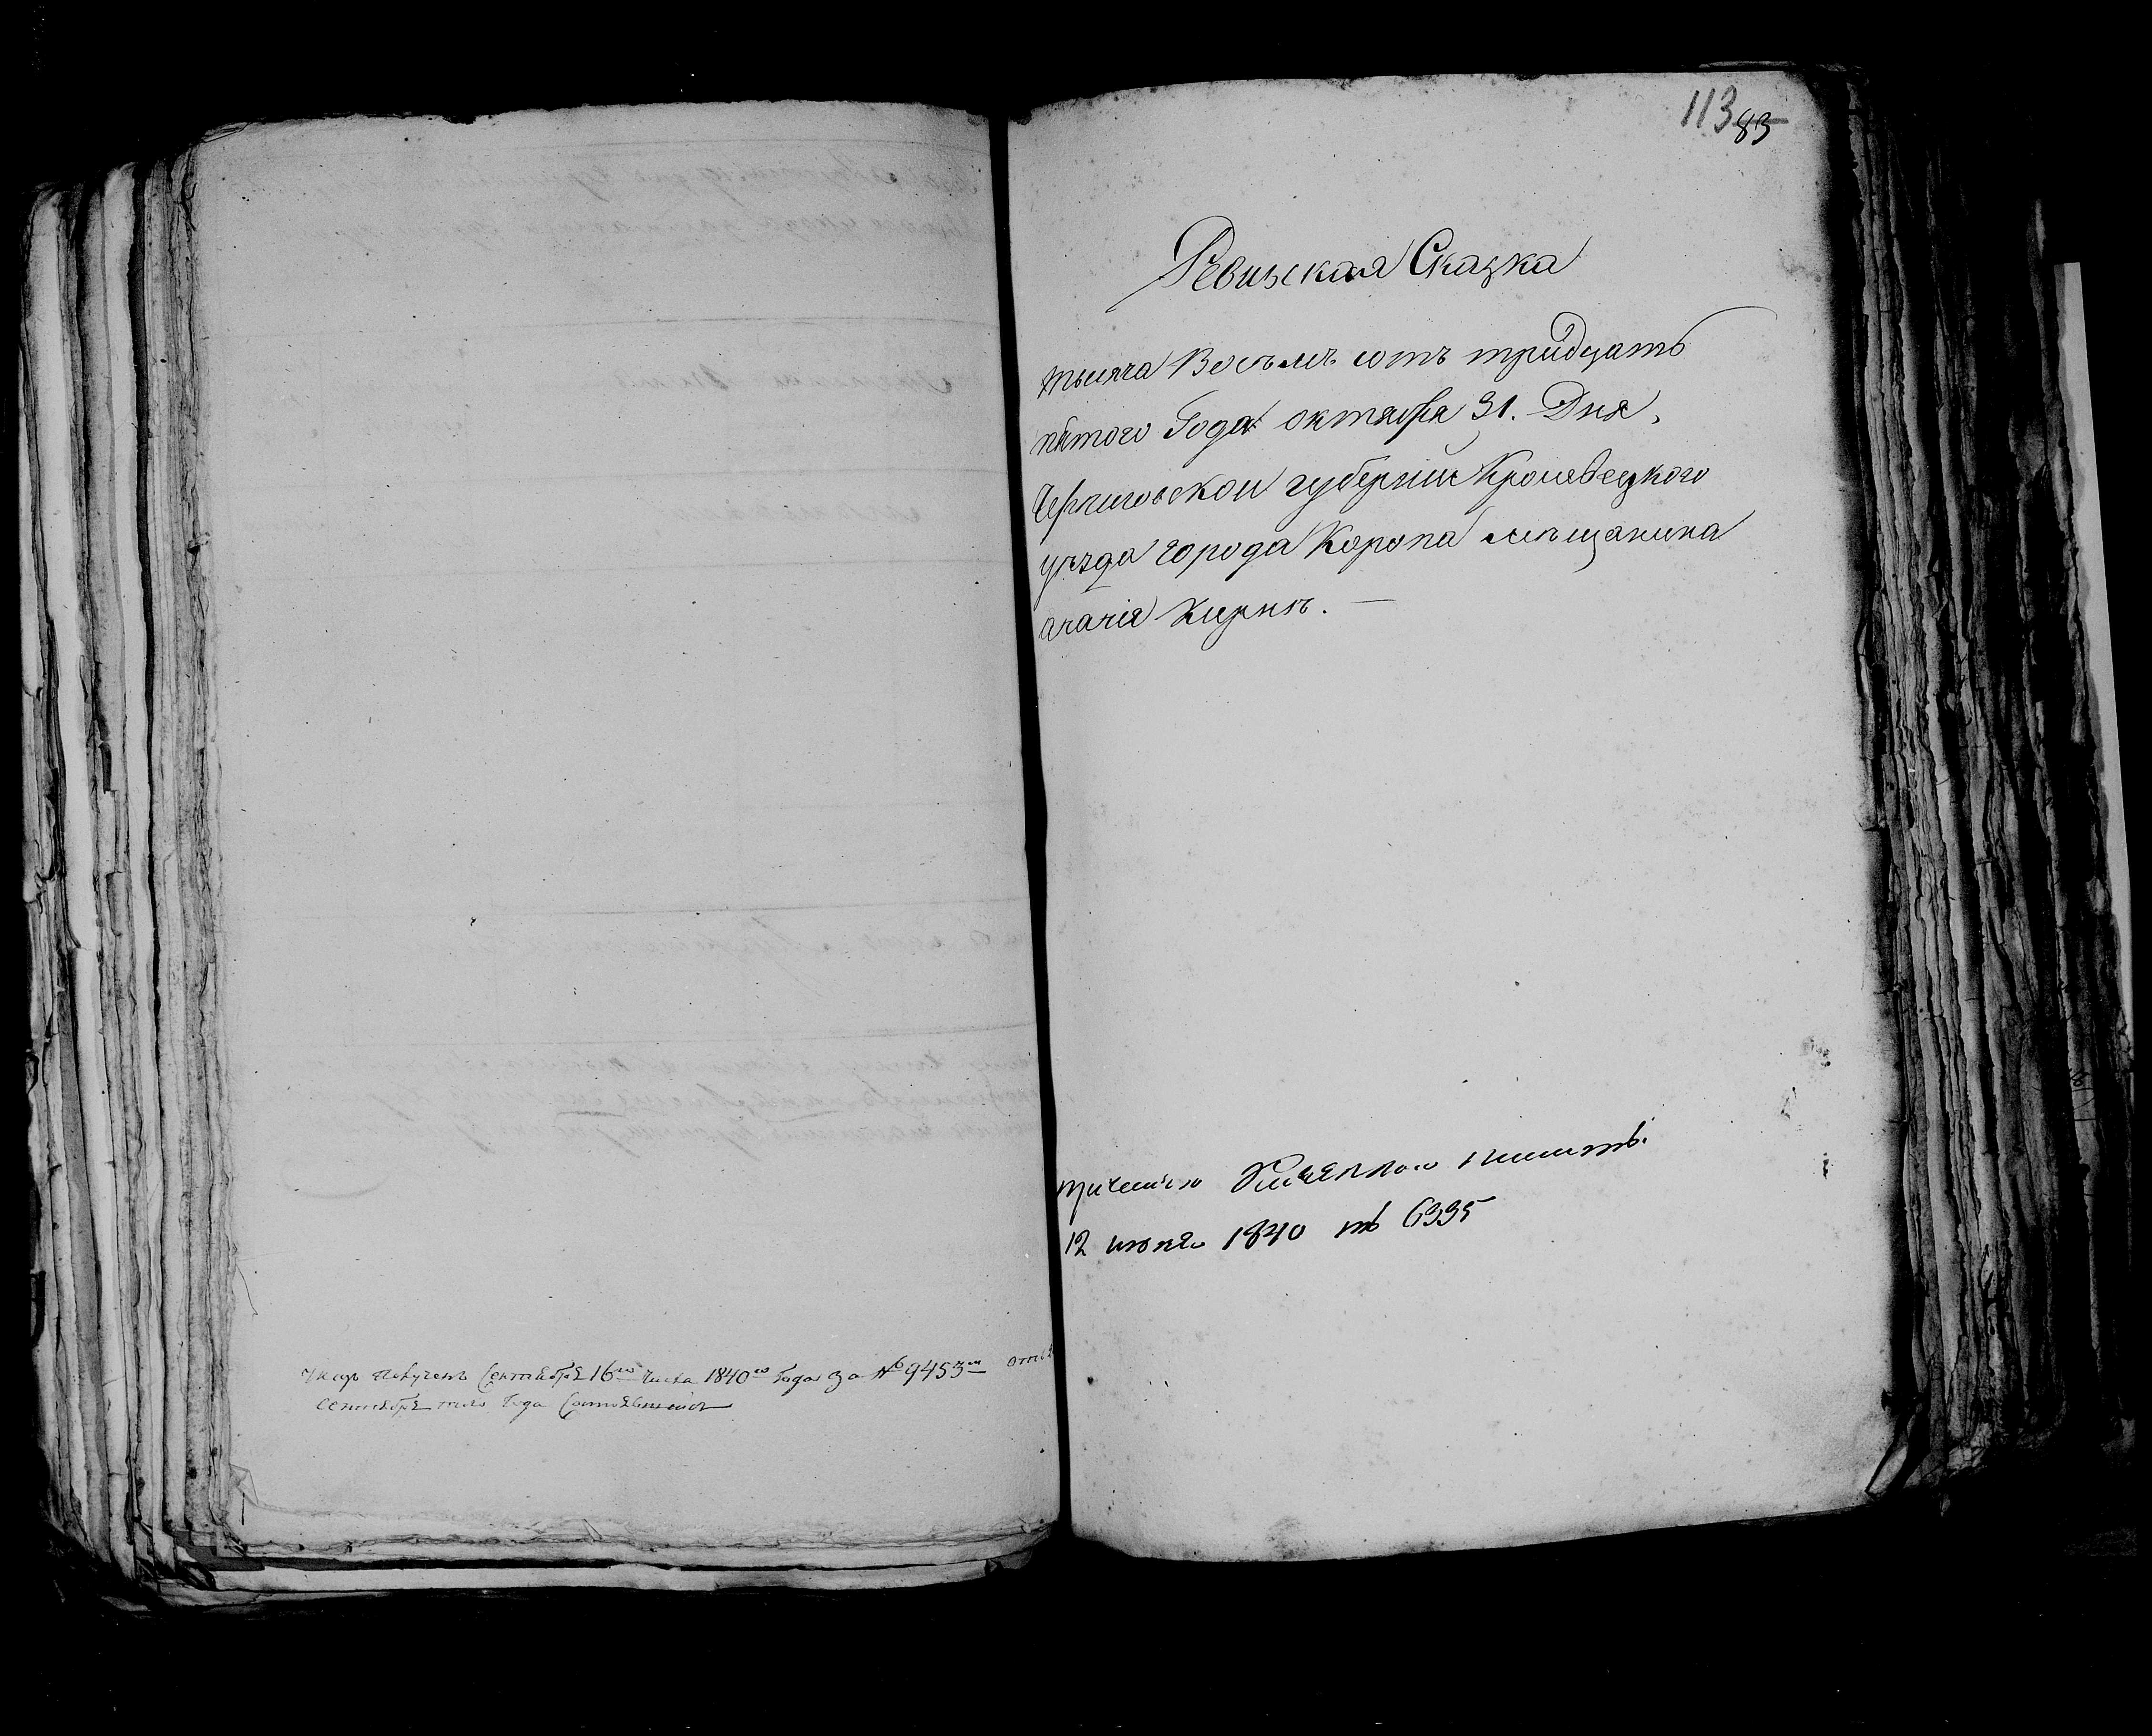 Указъ полученъ Сентября 16го числа 1840го Года за № 9453м
Сентября того Года Состоявшійся
113 83
Ревизская Сказка
тысяча Восѣмъ сотъ тридцать
пятого Года октября 31. Дня,
Черниговской губерніи Кролевецкого
уѣзда города Коропа мѣщанина
12 июня 1840 № 6335